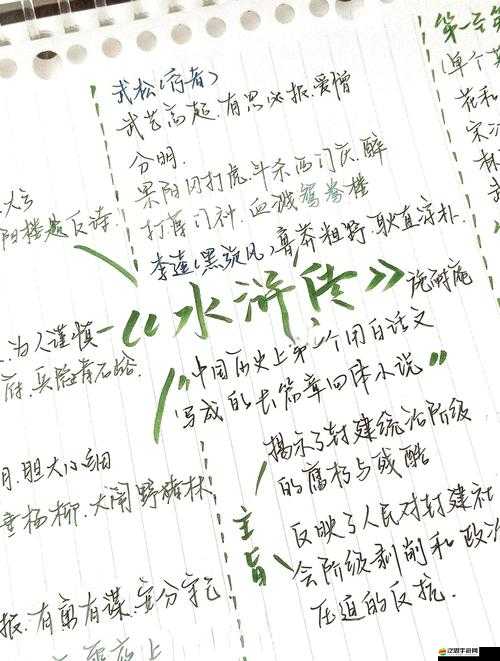 武松(行者)
武艺高超.有恩必报.爱憎
分明.
景阳冈打虎.斗杀西门庆.醉
打蒋门神.血溅鸳鸯楼
李逵(黑旋风).鲁莽粗野.耿直淳朴.
《水浒传》
施耐庵
"中国历史上第一个用白话文
写成的长篇章回体小说"
主旨
揭示了封建统治阶级
的腐朽与残酷
反映了人民对封建社
会阶级剥削和政治
压迫的反抗.
阳楼题反诗.
.为人谨慎
府.兵陷青石峪.
月.胆大心细
垂杨柳.大闹野猪林
报.有勇有谋.
第一至
(单个英
花和
宋江
林
武